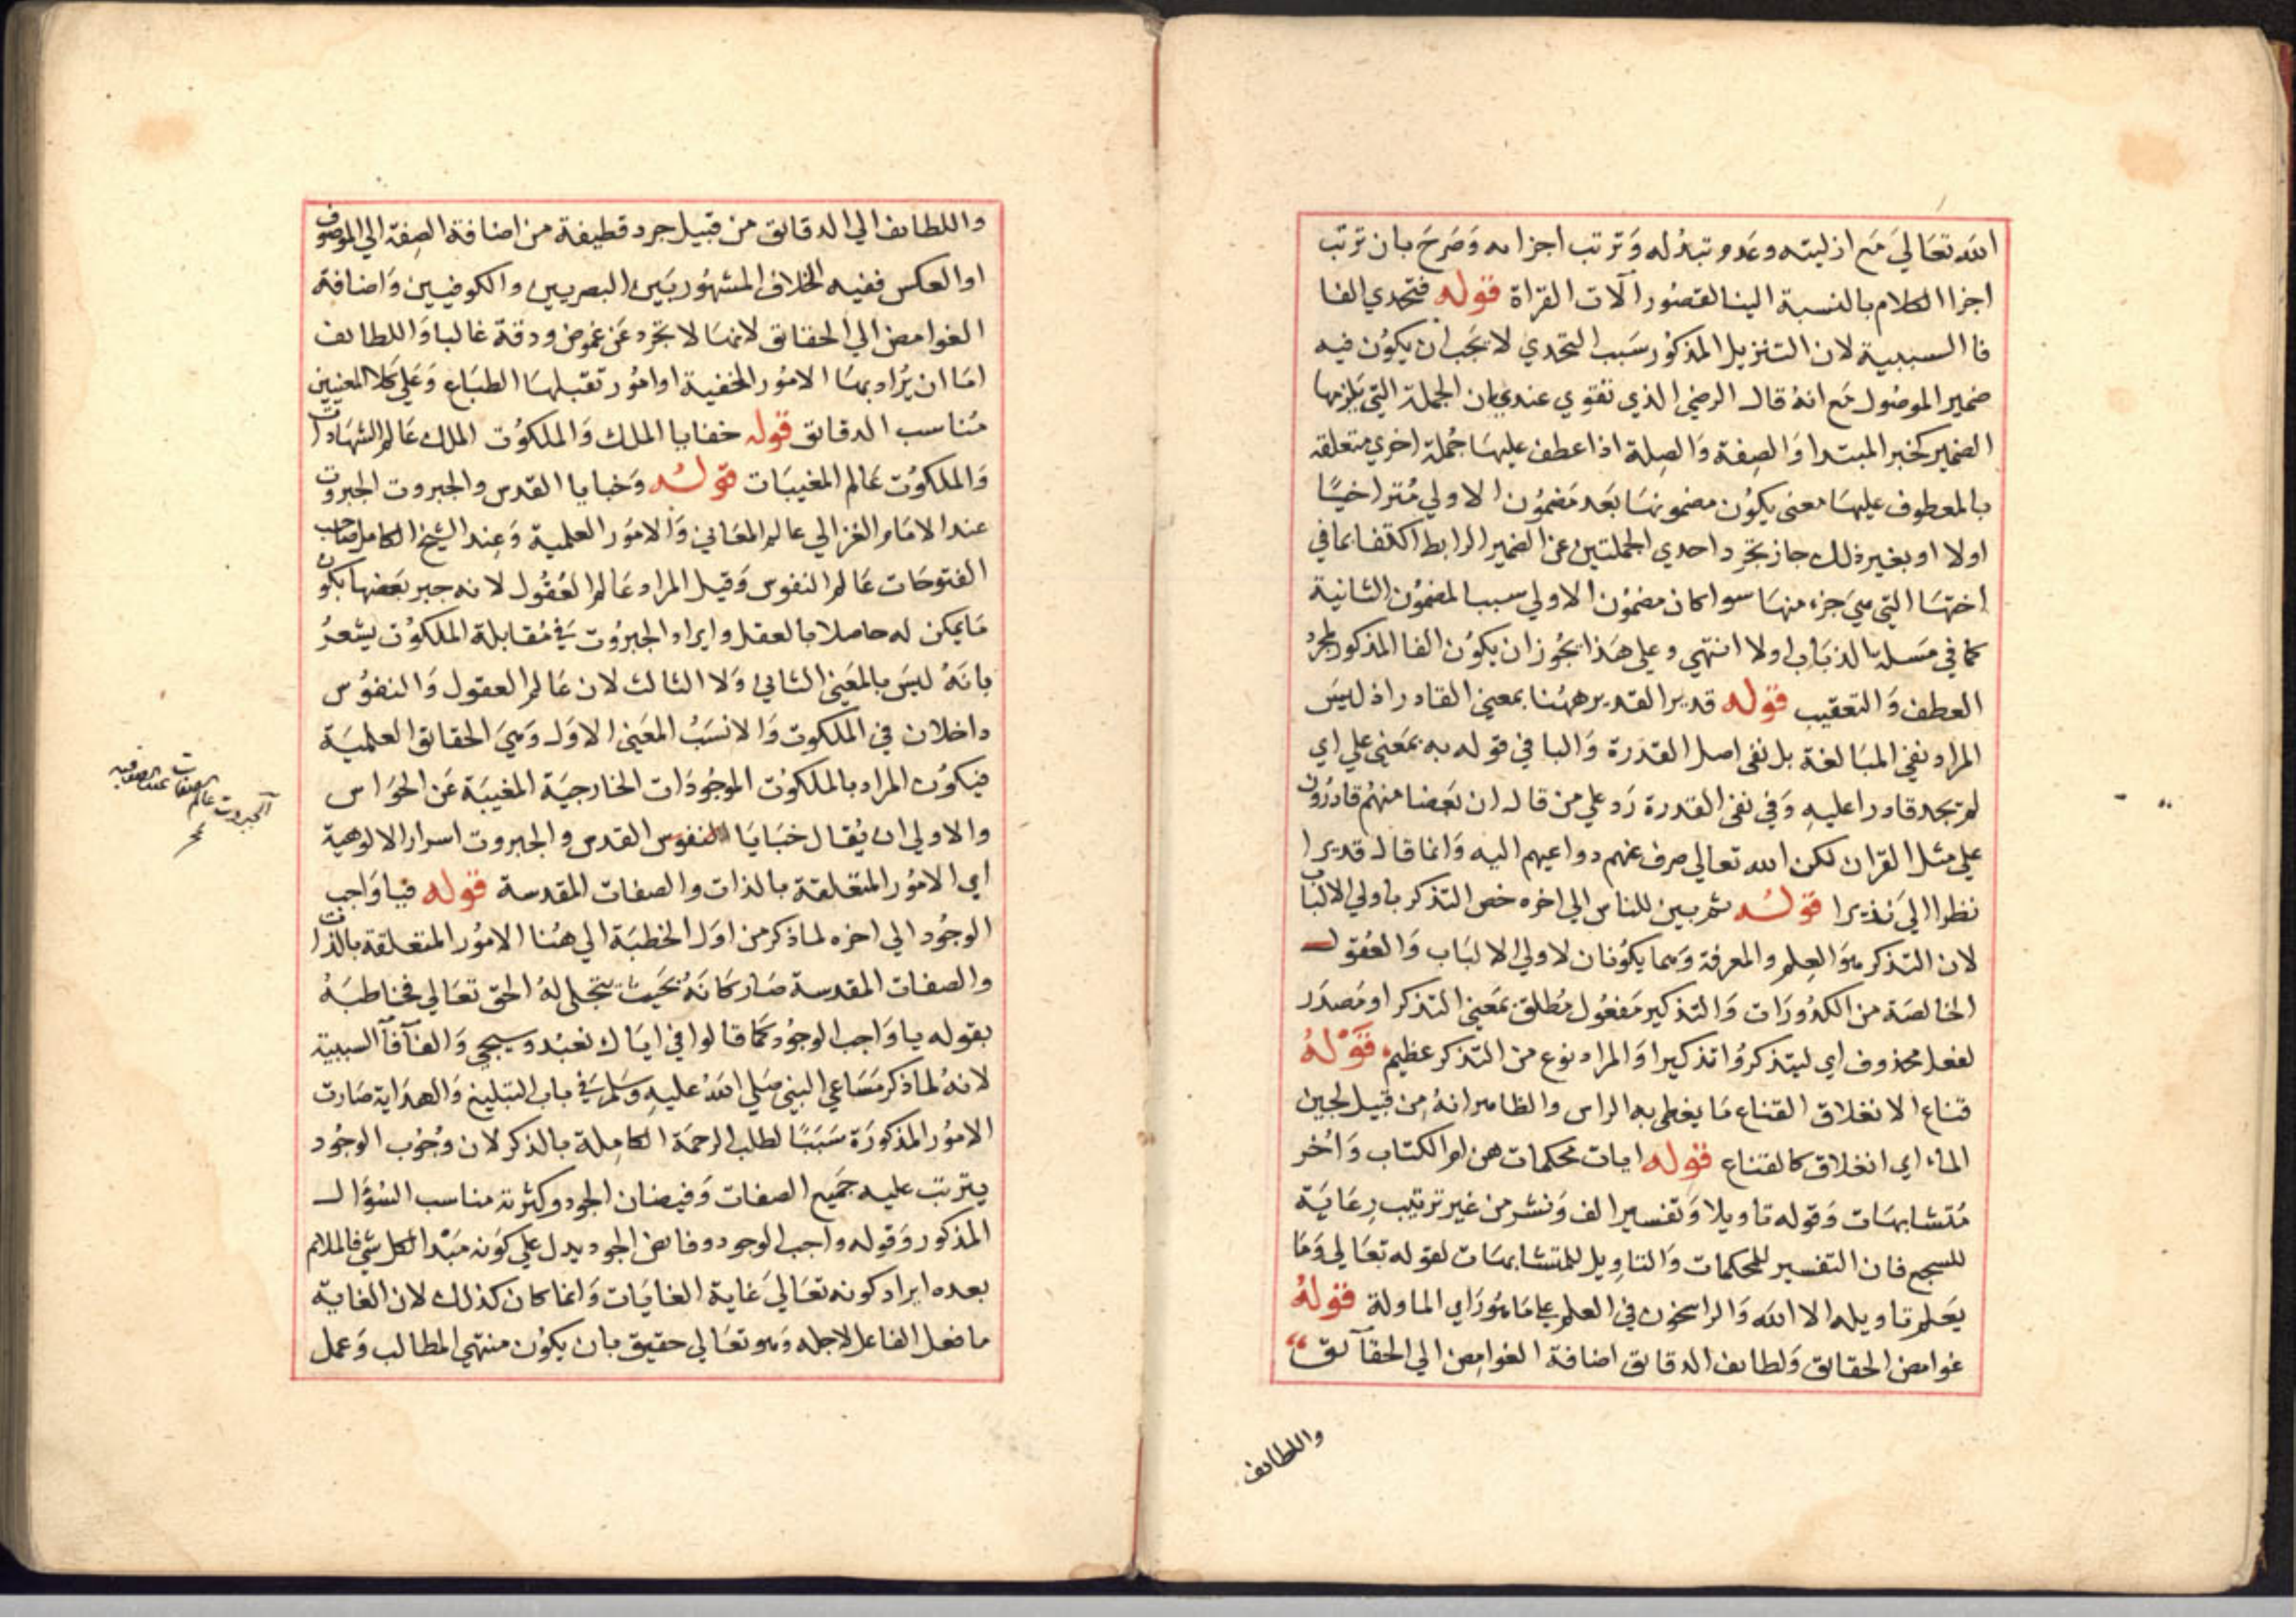 الله تعالي مع ازليته وعدم تبدله وترتب اجزائه وصرح بان ترتب
اجزا الكلام بالنسبة الينا لقصور آلات القراة قوله فتحدي الفا
فا السببية لان التنزيل المذكور سبب التحدي لا يجب ان يكون فيه
ضمير الموصول مع انه قال الرضي الذي تقوي عندي ان الجملة التي يلزمها
الضمير كخبر المبتدا والصفة والصلة اذا عطف عليها جملة اخري متعلقة
بالمعطوف عليها معنى يكون مضمونها بعد مضمون الاولي متراخيا
اولا او بغير ذلك جاز تجرد احدي الجملتين عن الضمير الرابط اكتفا بما في
اختها التي هي جزء منها سوا كان مضمون الاولي سببا لمضمون الثانية
كما في مسلة الذباب اولا انتهي وعلي هذا يجوز ان يكون الفا المذكور لمجرد
العطف والتعقيب قوله قديرا القدير ههنا بمعني القادر اذ ليس
المراد نفي المبالغة بل نفى اصل القدرة والبا في قوله به بمعنى علي اي
لم تجد قادرا عليه وفي نفى القدرة رد علي من قال ان بعضا منهم قادرون
علي مثل القران لكن الله تعالي صرف عنهم دواعيهم اليه وانما قال قديرا
نظرا الي نذيرا قوله ثم بين للناس الي اخره خص التذكر باولي الالباب
لان التذكر هو العلم والمعرفة وهما يكونان لاولي الالباب والعقول
الخالصة من الكدورات والتذكير مفعول مطلق بمعني التذكر او مصدر
لفعل محذوف اي ليتذكروا تذكيرا والمراد نوع من التذكر عظيم قوله
قناع الانغلاق القناع ما يغطى به الراس والظاهر انه من قبيل لجين
الماء اي انغلاق كالقناع قوله ايات محكمات هن ام الكتاب واخر
متشابهات وقوله تاويلا وتفسيرا لف ونشر من غير ترتيب رعاية
للسجع فان التفسير للمحكمات والتاويل للمتشابهات لقوله تعالي وما
يعلم تاويله الا الله والراسخون في العلم علي ما هو راي الماولة قوله
غوامض الحقائق ولطائف الدقائق اضافة الغوامض الي الحقائق
واللطائف
واللطائف الي الدقائق من قبيل جرد قطيفة من اضافة الصفة الي الموصوف
او العكس ففيه الخلاف المشهور بين البصريين والكوفيين واضافة
الغوامض الي الحقائق لانها لا تجرد عن غموض ودقة غالبا واللطائف
اما ان يراد بها الامور الخفية او امور تقبلها الطباع وعلي كلا المعنيين
مناسب الدقائق قوله خفايا الملك والملكوت الملك عالم الشهادات
والملكوت عالم المغيبات قوله وخبايا القدس والجبروت الجبروت
عند الامام الغزالي عالم المعاني والامور العلمية وعند الشيخ الكامل صاحب
الفتوحات عالم النفوس وقيل المراد عالم العقول لانه جبر بعضها بكون
ما يمكن له حاصلا بالعقل وايراد الجبروت في مقابلة الملكوت يشعر
بانه ليس بالمعني الثاني ولا الثالث لان عالم العقول والنفوس
داخلان في الملكوت والانسب المعني الاول وهي الحقائق العلمية
فيكون المراد بالملكوت الموجودات الخارجية المغيبة عن الحواس
والاولي ان يقال خبايا النفوس القدس والجبروت اسرار الالوهية
اي الامور المتعلقة بالذات والصفات المقدسة قوله فيا واجب
الوجود الي اخره لما ذكر من اول الخطبة الي هنا الامور المتعلقة بالذات
والصفات المقدسة صار كانه بحيث يتجلي له الحق تعالي فخاطبه
بقوله يا واجب الوجود كما قالوا في اياك نعبد وسيجي والفآ فآ السببية
لانه لما ذكر مساعي النبي صلي الله عليه وسلم في باب التبليغ والهداية صارت
الامور المذكورة سببا لطلب الرحمة الكاملة بالذكر لان وجوب الوجود
يترتب عليه جميع الصفات وفيضان الجود وكثرته مناسب السؤال
المذكور وقوله واجب الوجود وفائض الجود يدل علي كونه مبدا لكل شي فالملائم
بعده ايراد كونه تعالي غاية الغايات وانما كان كذلك لان الغاية
ما فعل الفاعل لاجله وهو تعالي حقيق بان يكون منتهي المطالب وعمل
الجبروت عالم الصفات عند الصوفيه